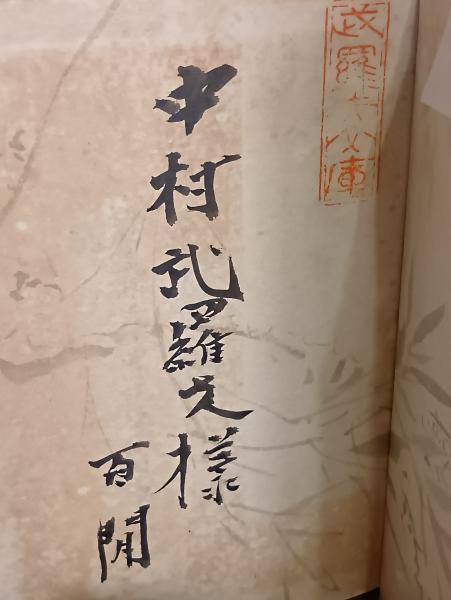 武羅夫文庫
中村武羅夫様
百閒